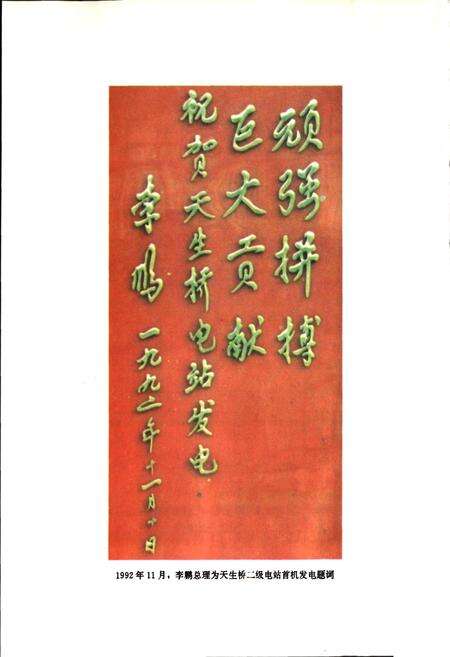 顽强拼搏
巨大贡献
祝贺天生桥电站发电
李鹏
一九九二年十一月十日
1992年11月，李鹏总理为天生桥二级电站首机发电题词